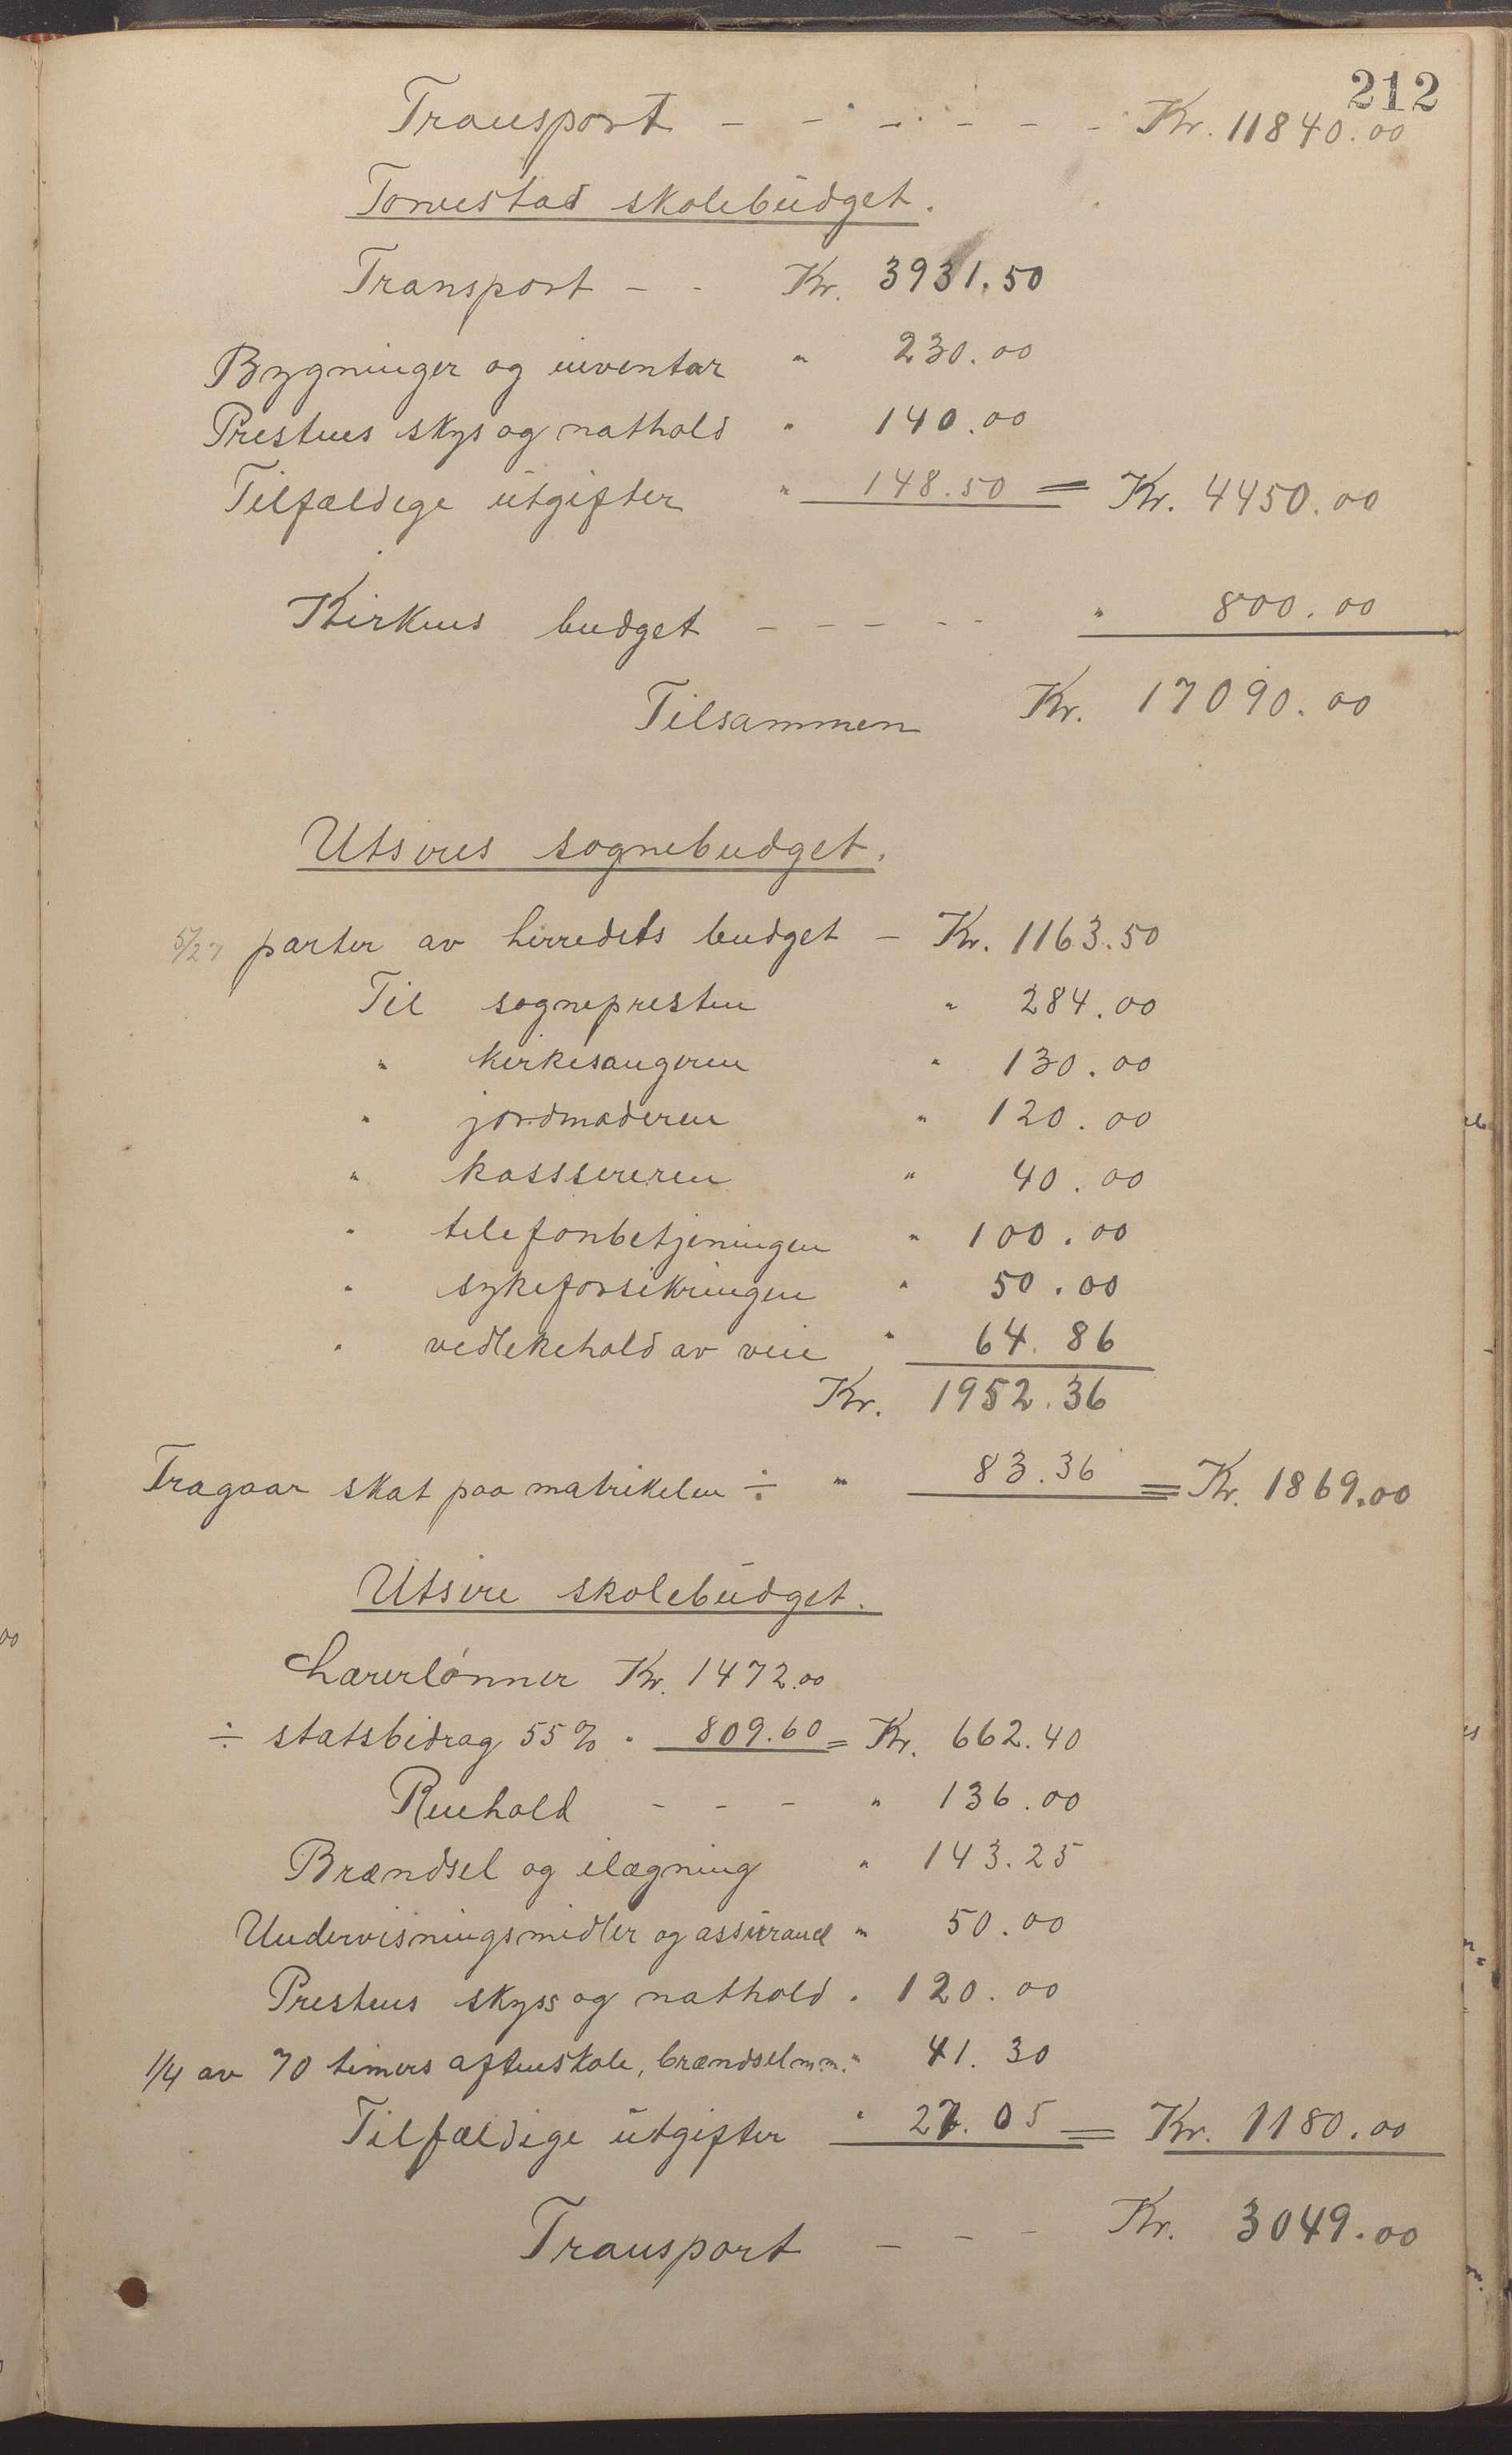 212
Transport - - - - - - Kr. 11840.00
Torvestad skolebudget.
Transport - - Kr. 3931.50
Bygninger og inventar " 230.00
Prestens skys og nathold " 140.00
Tilfældige utgifter " 148.50 = Kr. 4450.00
Kirkens budget - - - - - " 800.00
Tilsammen Kr. 17090.00
Utsires sognebudget.
5/27 parter av herredets budget - Kr. 1163.50
Til sognepresten " 284.00
" kirkesangeren " 130.00
" jordmoderen " 120.00
" kasssereren " 40.00
" telefonbetjeningen " 100.00
" sykeforsikringen " 50.00
" vedlekehold av veie " 64.86
Kr. 1952.36
Fragaar skat paa matrikelen ÷ " 83.36 = Kr. 1869.00
Utsire skolebudget.
Lærerlønner Kr. 1472.00
÷ statsbidrag 55% " 809.60 = Kr. 662.40
Renhold - - - " 136.00
Brændsel og ilægning " 143.25
Undervisningsmidler og assurance " 50.00
Prestens skyss og nathold " 120.00
1/4 av 70 timers aftenskole, brændsel m.m. " 41.30
Tilfældige utgifter " 27.05 = Kr. 1180.00
Transport - - - Kr. 3049.00